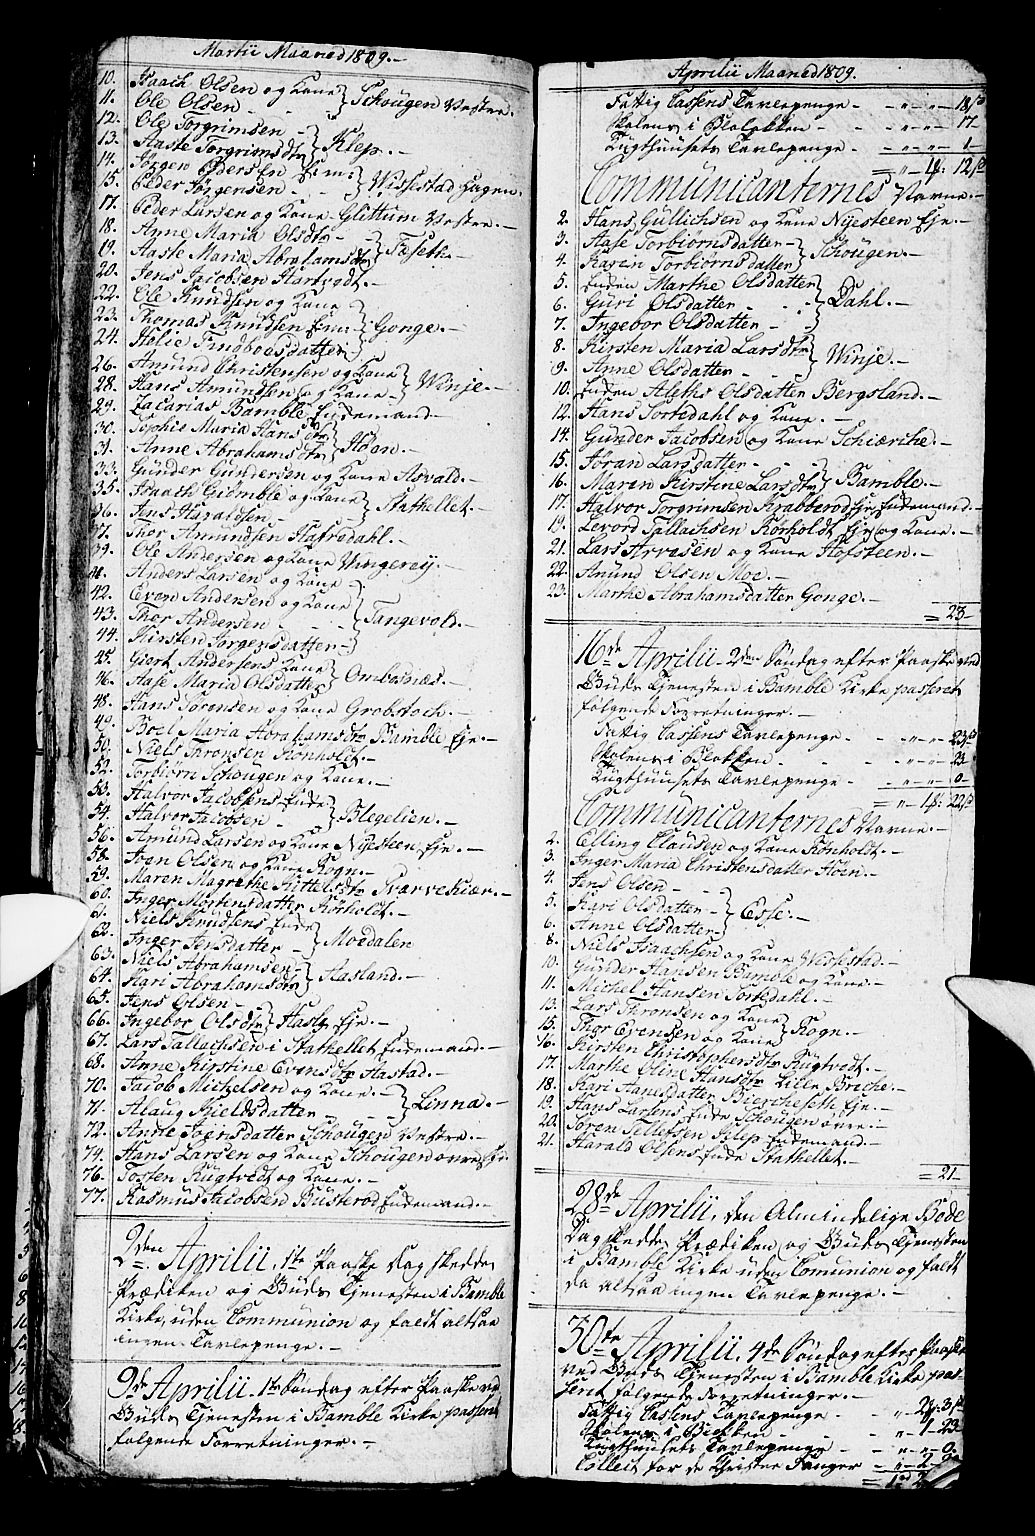 Martii Maaned 1809.
10. Isaach Olsen og Kone
11. Ole Olsen - } Schougen Vestre.
12. Ole Torgrimsen -
13. Aaste Torgrimsdtr } Klep.
14. Jørgen Pedersen
15. Peder Jørgensen - } Wissestad Hagen.
17. Peder Larsen og Kone Glittum Vestre.
18. Anne Maria Olsdtr -
19. Aaste Maria Abrahamsdtr
20. Jens Jacobsen Hartvedt.
22. Ole Knudsen og Kone
23. Thomas Knudsen
24. Helie Findboesdatter } Gonge.
26. Amund Christensen og Kone
28. Hans Amundsen og Kone } Winje
29. Zacarias Bamble Enkemand
30. Sophie Maria Hans dtr
31. Anne Abrahams dtr } Høen.
33. Gunder Gundersen og Kone Asvald.
35. Isaach Grømble og Kone
36. Jens Haraldsen - } Stathellet.
37. Thor Amundsen Hafredahl.
39. Ole Andersen og Kone Wingereij.
41. Anders Larsen og Kone
42. Even Andersen og Kone
43. Thor Andersen -
44. Kirsten Jørgensdatter } Tangevold.
45. Giort Andersens Kone
46. Aase Maria Olsdatter } Ombosnæs.
48. Hans Sørensen og Kone Grobstoch.
49. Boel Maria Abrahamsdtr Bamble Eje.
50. Niels Thronsen Rønholdt.
52. Torbiørn Schougen og Kone.
53. Halvor Jacobsens Enke
54. Halvor Jacobsen - } Blegelien.
56. Amund Larsen og Kone Nyesteen Eje.
58. Iven Olsen og Kone Rogn.
59. Maren Magrethe Kittelsdtr
60. Inger Mortensdatter Rørholdt.
61. Niels Knudsens Enke
62. Inger Jensdatter - } Moedalen
63. Niels Abrahamsen
64. Kari Abrahamsdtr } Aasland.
65. Jens Olsen -
66. Ingebor Olsdtr } Hasle Eje.
67. Lars Tallachsen i Stathellet Enkemand.
68. Anne Kirstine Evensdtr Hastad.
70. Jacob Michelsen og Kone.
71. Alaug Kieldsdatter - } Linna.
72. Anne Joensdatter Schougen Vestre.
74. Hans Larsen og Kone Schougen øvre
76. Tosten Rugtvedt og Kone.
77. Rasmus Jacobsen Busterød Enkemand.
2den Aprilii. 1ste Paaske Dag skedde
Prædiken og Guds Tjenesten i Bamble
Kirke, uden Communion og faldt altsaa
ingen Tavlepenge.
9de Aprilii. 1ste Søndag efter Paaske ved
Guds Tjenesten i Bamble Kirke passerit
følgende Forretninger.
Aprilii Maaned 1809.
Fattig Cassens Tavlepenge - " " 18
Skolens i Blokken - " " 17
Tugthuusets Tavlepenge - " " 1
= " 1 12
Communicanternes Navne.
2. Hans Gullichsen og Kone Nyesteen Eje.
3. Aase Torbiørnsdatter -
4. Karin Torbiørnsdatter } Schougen.
5. Enken Marthe Olsdatter
6. Guri Olsdatter
7. Ingebor Olsdatter } Dahl.
8. Kirsten Maria Larsdtr
9. Anne Olsdatter - } Winje.
10. Enken Aleths Olsdatter Bergsland.
12. Hans Tortedahl og Kone.
14. Gunder Jacobsen og Kone Schierche.
15. Jøran Larsdatter -
16. Maren Kirstine Larsdtr } Bamble.
17. Halvor Torgrimsen Krabberød Eje Enkemand.
19. Levord Tallachsen Rørholdt Eje og Kone.
21. Lars Arvesen og Kone Hofsteen.
22. Amund Olsen Moe.
23. Marthe Abrahamsdatter Gonge.
= 23
16de Aprilii 2den Søndag efter Paaske ved
Guds Tjenesten i Bamble Kirke passerit
følgende Forretninger.
Fattig Cassens Tavlepenge - " " 23
Skolens i Blokken - " " 23
Tugthuusets Tavlepenge " " 0
= " 1 22
Communicanternes Navne.
2. Elling Clausen og Kone Rønholdt.
3. Inger Maria Christensdatter Høen.
4. Jens Olsen -
5. Kari Olsdatter -
6. Anne Olsdatter } Esse.
8. Niels Isaachsen og Kone Wissestad.
10. Gunder Hansen Bamble og Kone.
11. Michel Hansen Tortedahl.
13. Lars Thronsen og Kone
15. Thor Evensen og Kone } Rogn.
16. Kirsten Christophersdtr Rugtvedt.
17. Marthe Oline Hansdtr Lille Breche.
18. Kari Hansdatter Biercheseth Eje.
19. Hans Larsens Enke Schougen øvre
20. Søren Tellefsen Klep Enkemand.
21. Harald Olsens Enke Stathellet.
= 21
28de Aprilii, den Almindelige Bede
Dag skedde Prædiken og Guds Tjenesten
i Bamble Kirke uden Comunion og faldt
da altsaa ingen Tavlepenge.
30te Aprilii. 4de Søndag efter Paaske
ved Guds Tjenesten i Bamble Kirke pas-
serit følgende Forretninger.
Fattig Cassens Tavlepenge -
Skolens i Blokken - " 1 23
Tugthuusets Tavlepenge - " " 0
Collect for de Christne Fanger